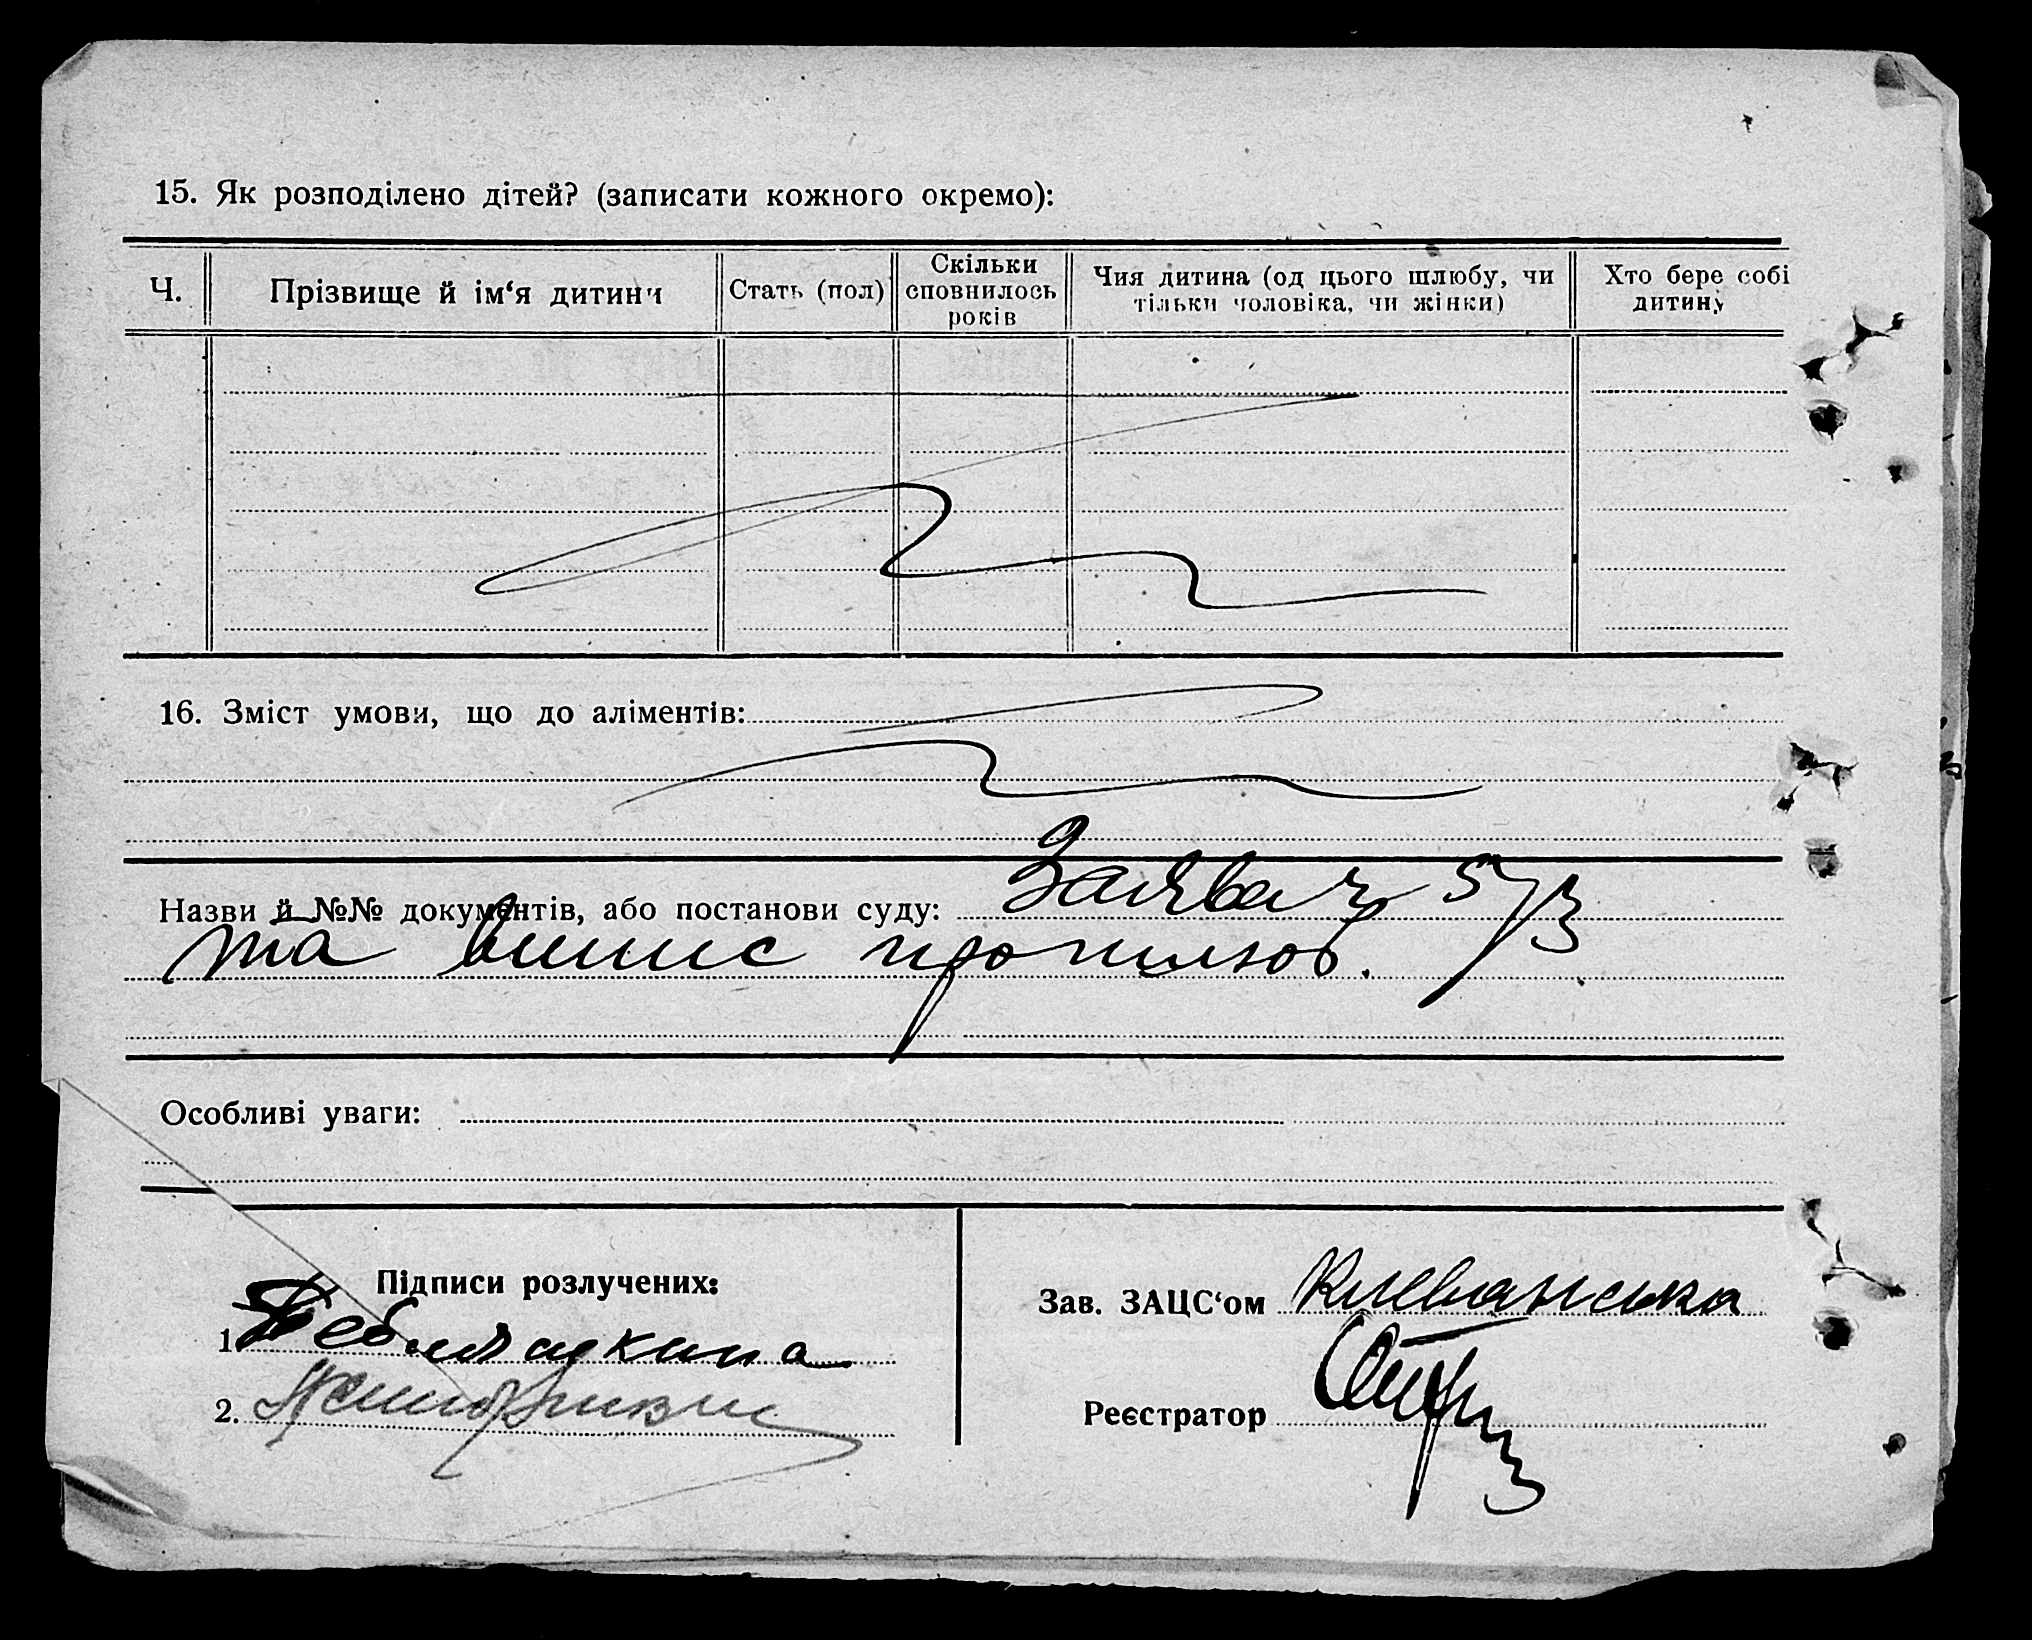 15. Як розподілено дітей? (записати кожного окремо):
Ч. Прізвище й ім‘я дитини Стать (пол) Скільки сповнилось років Чия дитина (од цього шлюбу, чи тільки чоловіка, чи жінки) Хто бере собі дитину
16. Зміст умови, що до аліментів:
Назви й №№ документів, або постанови суду: Заява з 5/3
та випис про шлюб.
Особливі уваги:
Підписи розлучених:
1.
2.
Зав. ЗАЦС‘ом Клеванська
Реєстратор